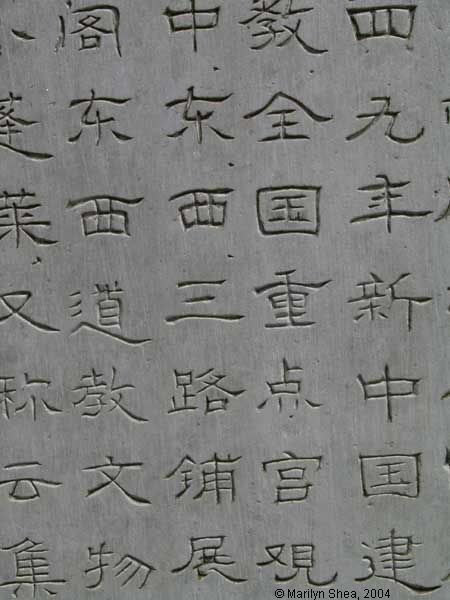 四九年新中国建
教全国重点宫观
中东西三路铺展
阁东西道教文物
蓬莱又称云集
© Marilyn Shea, 2004